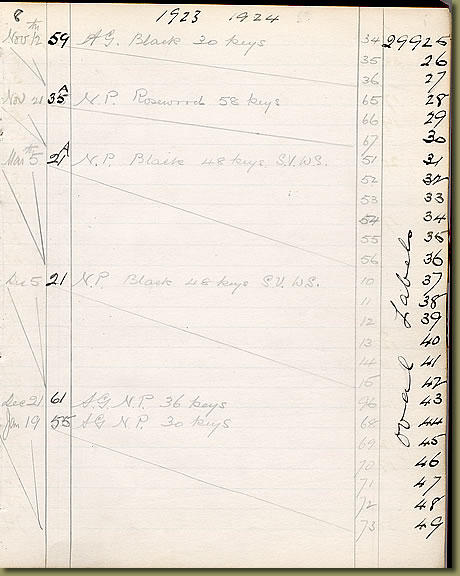 8 1923 1924
Nov 12th 59 A.G. Black 30 keys 34 29925
35 26
36 27
Nov 21 35A N.P. Rosewood 58 keys 65 28
66 29
67 30
Mar 5th 21A N.P. Black 48 keys S.V. WS. 51 31
52 32
53 33
54 34
55 35
56 36
Dec 5 21 N.P. Black 48 keys S.V. WS. 10 37
11 38
12 39
13 40
14 41
15 42
Dec 21 61 A.G. N.P. 36 keys 96 43
Jan 19 55 AG N.P. 30 keys 68 44
69 45
70 46
71 47
72 48
73 49
oval Labels